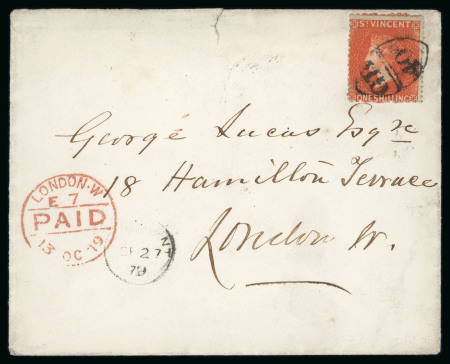 ST VINCENT
ONE SHILLING
George Lucas Esqre
18 Hamilton Terrace
London W.
LONDON·W
E 7
PAID
13 OC 79
27
79